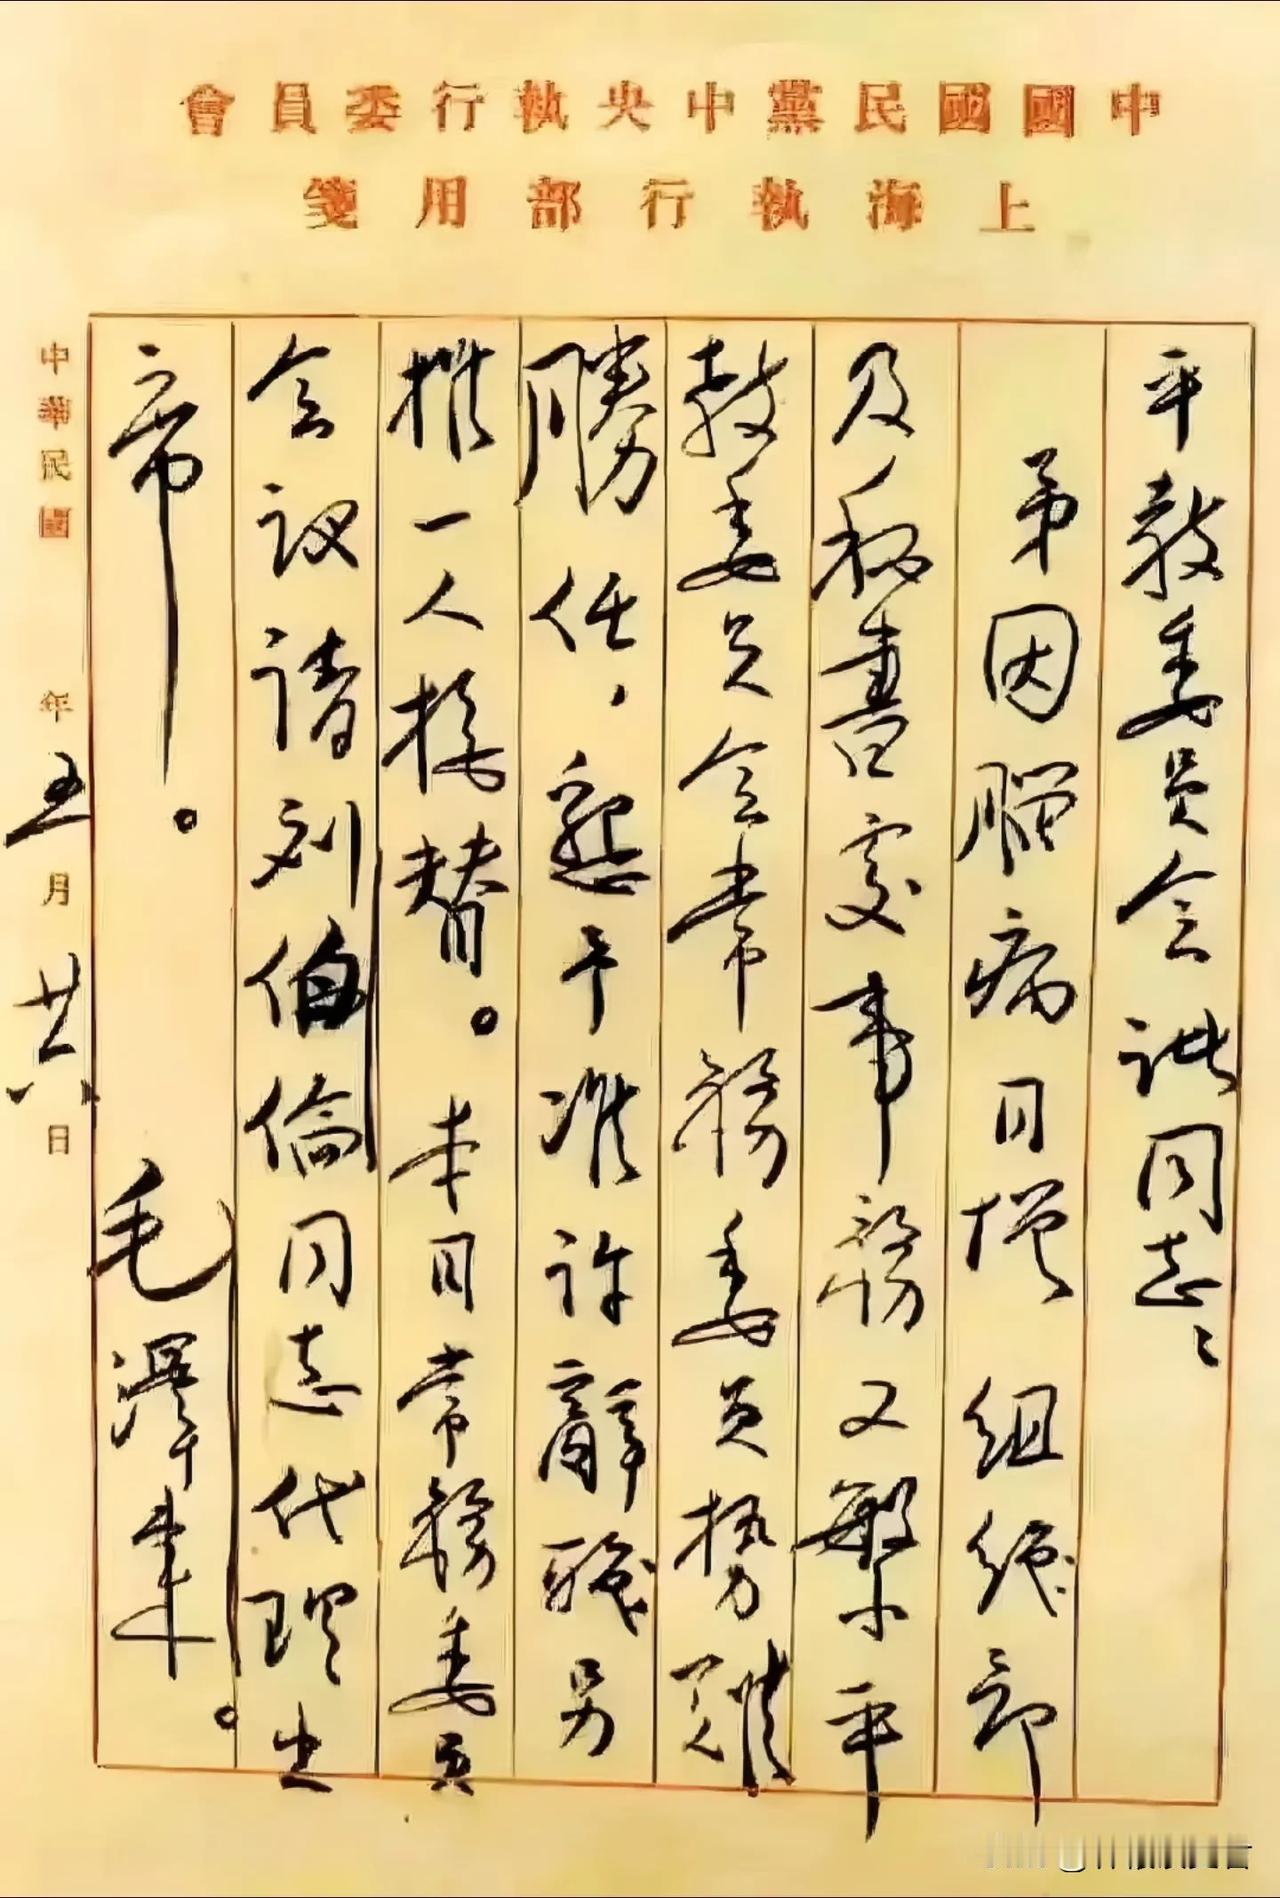 中國國民黨中央執行委員會
上海執行部用箋
平教委員会諸同志：
弟因腦病日增組織部
及秘書處事務又繁平
教委員会常務委員势難
勝任，懇予准許辭職另
推一人接替。本日常務委員
会议請刘伯倫同志代理出
席。毛澤東。
中華民國 年五月廿六日